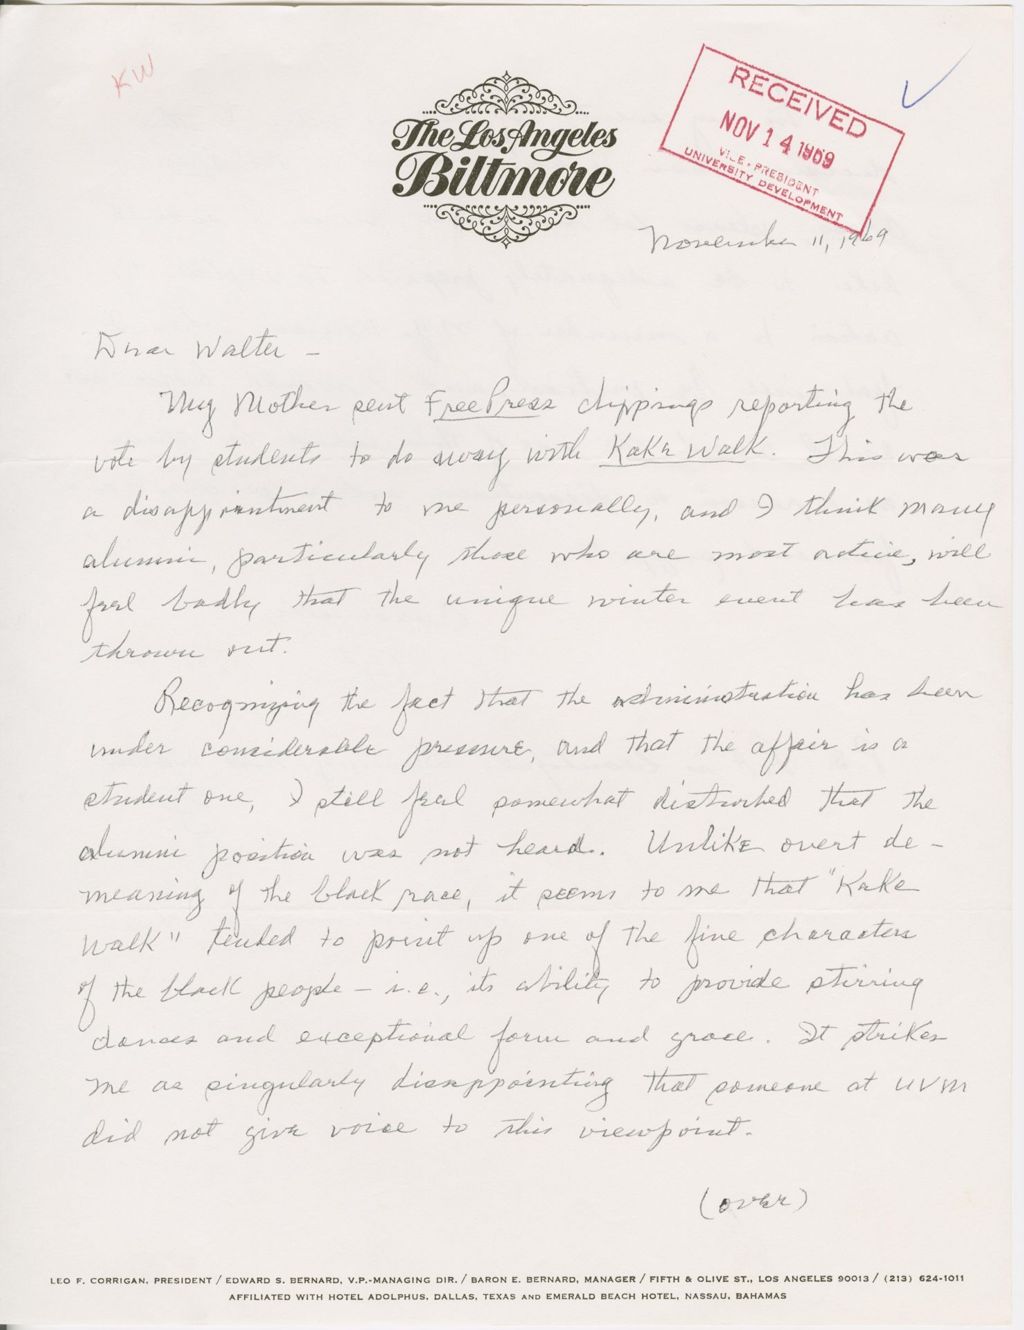 KW
The Los Angeles
Biltmore
RECEIVED
NOV 14 1969
VICE-PRESIDENT
UNIVERSITY DEVELOPMENT
November 11, 1969
Dear Walter -
My Mother sent Free Press clippings reporting the
vote by students to do away with Kake Walk. This was
a disappointment to me personally, and I think many
alumni, particularly those who are most active, will
feel badly that the unique winter event has been
thrown out.
Recognizing the fact that the administration has been
under considerable pressure, and that the affair is a
student one, I still feel somewhat disturbed that the
alumni position was not heard. Unlike overt de-
meaning of the black race, it seems to me that "Kake
Walk" tended to point up one of the fine characters
of the black people - i.e., its ability to provide stirring
dances and exceptional form and grace. It strikes
me as singularly disappointing that someone at UVM
did not give voice to this viewpoint.
(over)
LEO F. CORRIGAN, PRESIDENT / EDWARD S. BERNARD, V.P.-MANAGING DIR. / BARON E. BERNARD, MANAGER / FIFTH & OLIVE ST., LOS ANGELES 90013 / (213) 624-1011
AFFILIATED WITH HOTEL ADOLPHUS, DALLAS, TEXAS AND EMERALD BEACH HOTEL, NASSAU, BAHAMAS